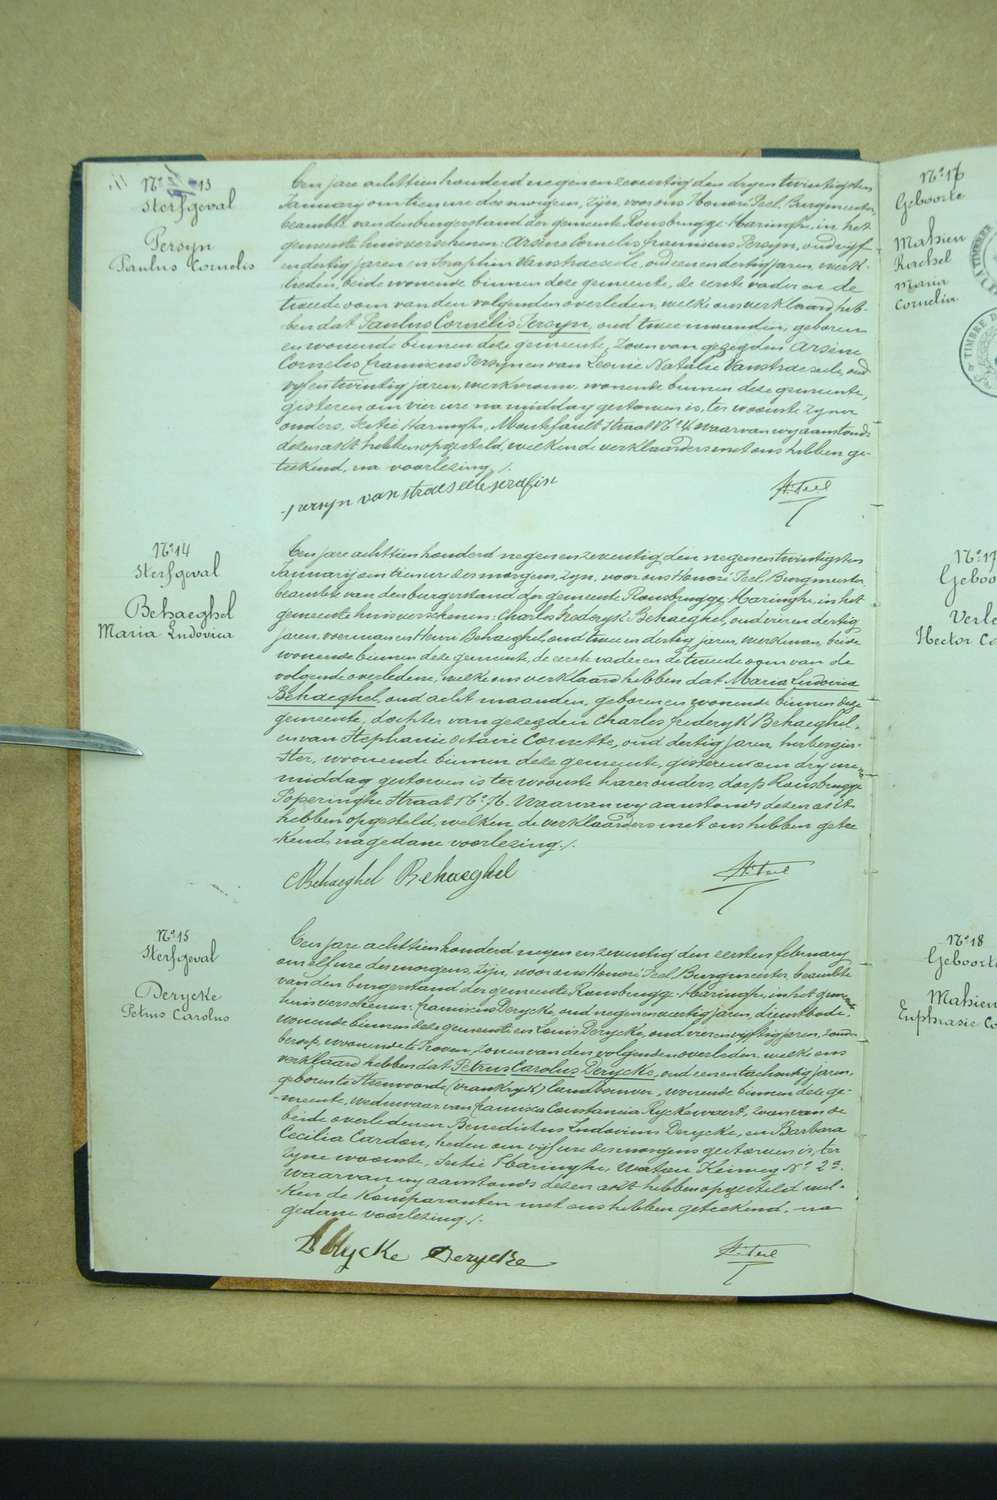 Nº 13
Sterfgeval
Persyn
Paulus Cornelis
Een jare achttien honderd negen en zeventig den dry en twintigsten
January om tien ure des morgens, zijn, voor ons Honoré Peel, Burgmeester,
beambte van den burgerstand der gemeente Rousbrugge-Haringhe, in het
gemeentehuis verschenen: Arsène Cornelis franciscus Persyn, oud vyf
en dertig jaren en Seraphin Vanstraeseele, oud een en dertig jaren, werk-
lieden, beide wonende binnen deze gemeente, de eerste vader en de
tweede oom van den volgenden overleden, welke ons verklaard heb-
ben dat Paulus Cornelis Persyn, oud twee maanden, geboren
en wonende binnen deze gemeente, zoon van gezegden Arsène
Cornelis franciscus Persyn en van Leonie Natalie Vanstraeseele, oud
vyf en twintig jaren, werkvrouw, wonende binnen deze gemeente,
gisteren om vier ure na middag gestorven is, ter wooste zyner
ouders, sectie Haringhe, straat Nº 4. Waarvan wy aanstonds
dezen akt hebben opgesteld, welken de verklaarders met ons hebben ge-
teekend, na voorlezing ./.
persyn vanstraeseele serafin
H. Peel
Nº 14
Sterfgeval
Behaeghel
Maria Ludovica
Een jare achttien honderd negen en zeventig den negen en twintigsten
Januarij om tien ure des morgens, zyn, voor ons Honoré Peel, Burgmeester,
beambte van den burgerstand der gemeente Rousbrugge-Haringhe, in het
gemeente huis verschenen: Charles frederyk Behaeghel, oud vier en dertig
jaren, voerman en Henri Behaeghel, oud twee en dertig jaren, werkman, beide
wonende binnen deze gemeente, de eerste vader en de tweede oom van de
volgende overledene, welke ons verklaard hebben dat Maria Ludovica
Behaeghel, oud acht maanden, geboren en wonende binnen deze
gemeente, dochter van gezegden Charles frederyk Behaeghel
en van Stephanie Octavie Cornette, oud dertig jaren, herbergier-
ster, wonende binnen deze gemeente, gisteren om dry ure na
middag gestorven is ter wooste harer ouders, dorp Rousbrugge
Poperinghe straat Nº 76. Waarvan wy aanstonds dezen akt
hebben opgesteld, welken de verklaarders met ons hebben getee-
kend, na gedane voorlezing ./.
C Behaeghel Behaeghel
H. Peel
Nº 15
Sterfgeval
Derycke
Petrus Carolus
Een jare achttien honderd negen en zeventig den eersten february
om elf ure des morgens, zijn, voor ons Honoré Peel, Burgmeester, beambte
van den burgerstand der gemeente Rousbrugge-Haringhe, in het gemeente-
huis verschenen: franciscus Derycke, oud negen en veertig jaren, dienstbode,
wonende binnen deze gemeente en Louis Derycke, oud vier en vyftig jaren, zonder
beroep, wonende te Proven, zonen van den volgenden overleden, welke ons
verklaard hebben dat Petrus Carolus Derycke, oud een en tachentig jaren,
geboren te Steenvoorde (Vrankryk) landbouwer, wonende binnen deze ge-
meente, weduwaar van francisca Constancia Ryckewaert, zoon van de
beide overledenen Benedictus Ludovicus Derycke, en Barbara
Cecilia Cardon, heden om vyf ure des morgens gestorven is, ter
zyne wooste, sectie Haringhe, Watou Keiweg Nº 23.
Waarvan wy aanstonds dezen akt hebben opgesteld wel-
ken de komparanten met ons hebben geteekend, na
gedane voorlezing ./.
Derycke
H. Peel
Nº 16
Geboorte
Mahieu
Rachel
Maria
Cornelia
TIMBRE
Nº 17
Geboo
Verle
Hector Co
Nº 18
Geboort
Mahieu
Euphrasie Co